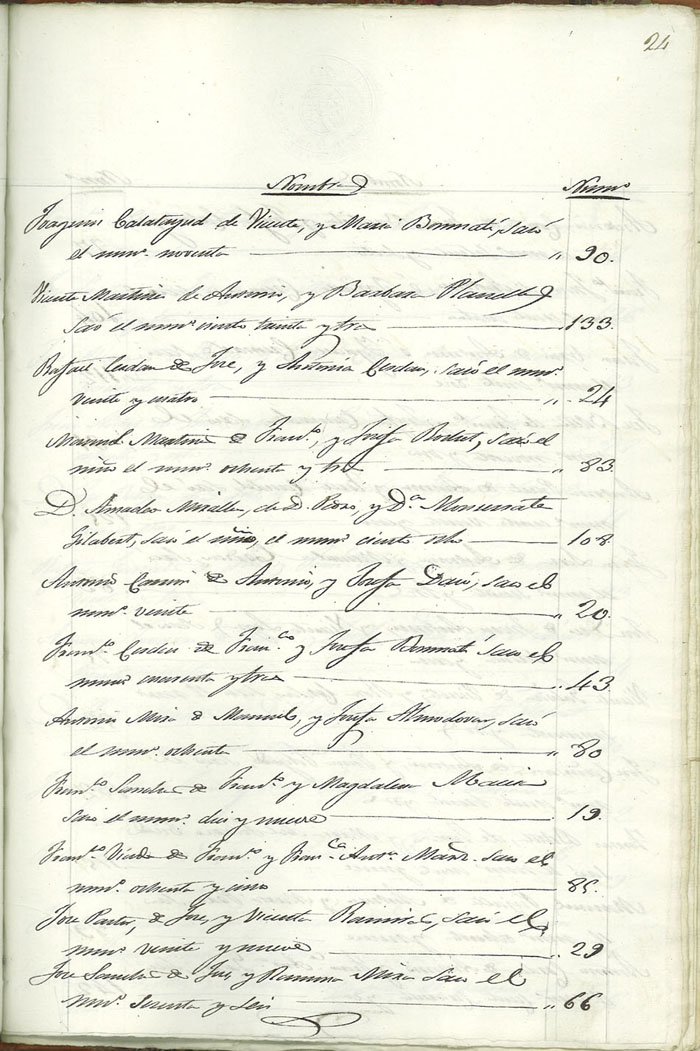 24
Nombres Num.º
Joaquin Calatayud de Vicente, y Maria Bonmatí, sacó
el num.º noventa " 90.
Vicente Martinez de Antonio, y Barbara Planelles
saco el num.º ciento treinta y tres 133.
Rafael Cerdan de Jose, y Antonia Cerdan, sacó el num.º
veinte y cuatro " 24
Manuel Martinez de Fran.co, y Josefa
niño el num.º ochenta y tres " 83.
D. Amadeo Miralles, de D. Pedro, y D.ª Monserrate
Gilabert, sacó el niño, el num.º ciento ocho 108.
Antonio de Antonio, y Josefa saco el
num.º veinte " 20.
Fran.co Cerdan de Fran.co y Josefa Bonmatí saco el
num.º cuarenta y tres " 43
Antonio Mira de Manuel, y Josefa Almodovar, sacó
el num.º ochenta " 80
Fran.co Sanchez de Fran.co y Magdalena Macia
sacó el num.º diez y nueve " 19.
Fran.co de Fran.co y Fran.ca Ant.ª saco el
num.º ochenta y cinco " 85.
Jose Pastor, de Jose, y Vicenta Ramirez, sacó el
num.º veinte y nueve " 29
Jose Sanchez de Jose, y Ramona Mira saco el
num.º sesenta y seis " 66